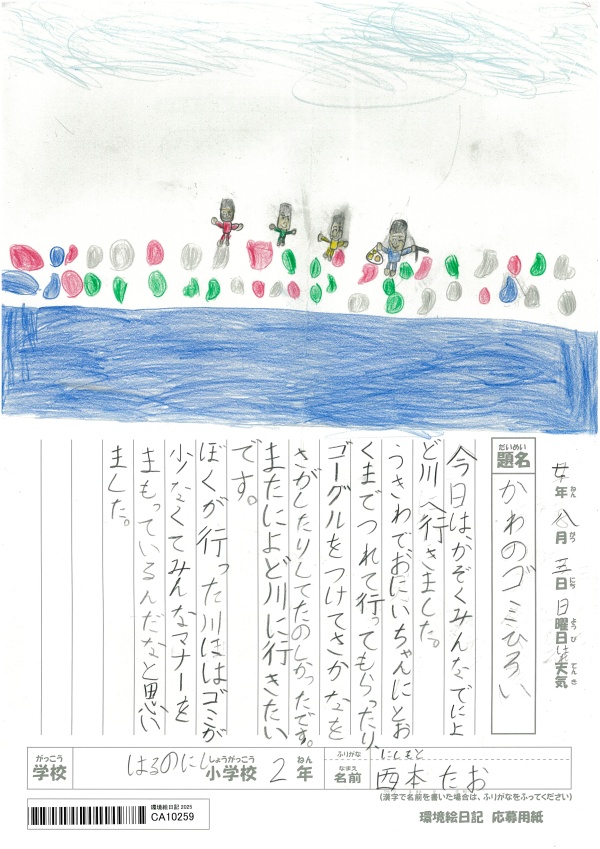 年 八月 五日 日曜日 はれ 天気
ねん がつ にち ようび てんき
だいめい
題名 かわのゴミひろい
今日は、かぞくみんなでによ
ど川へ行きました。
うきわでおにいちゃんにとお
くまでつれて行ってもらったり、
ゴーグルをつけてさかなを
さがしたりしてたのしかったです。
またによど川に行きたい
です。
ぼくが行った川はゴミが
少なくてみんなマナーを
まもっているんだなと思い
ました。
がっこう
学校 はるのにし小学校 2年
しょうがっこう ねん
ふりがな にしもと
なまえ
名前 西本 たお
(漢字で名前を書いた場合は、ふりがなをふってください)
環境絵日記 2025
CA10259
環境絵日記 応募用紙